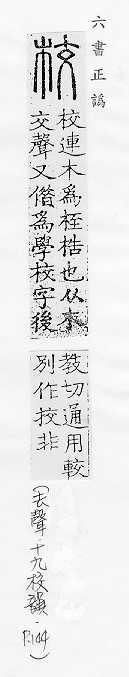 六書正譌
校
校連木爲桎梏也从木
交聲又借爲學校字後
教切通用較
別作挍非
(去聲·十九校韻·P.144)